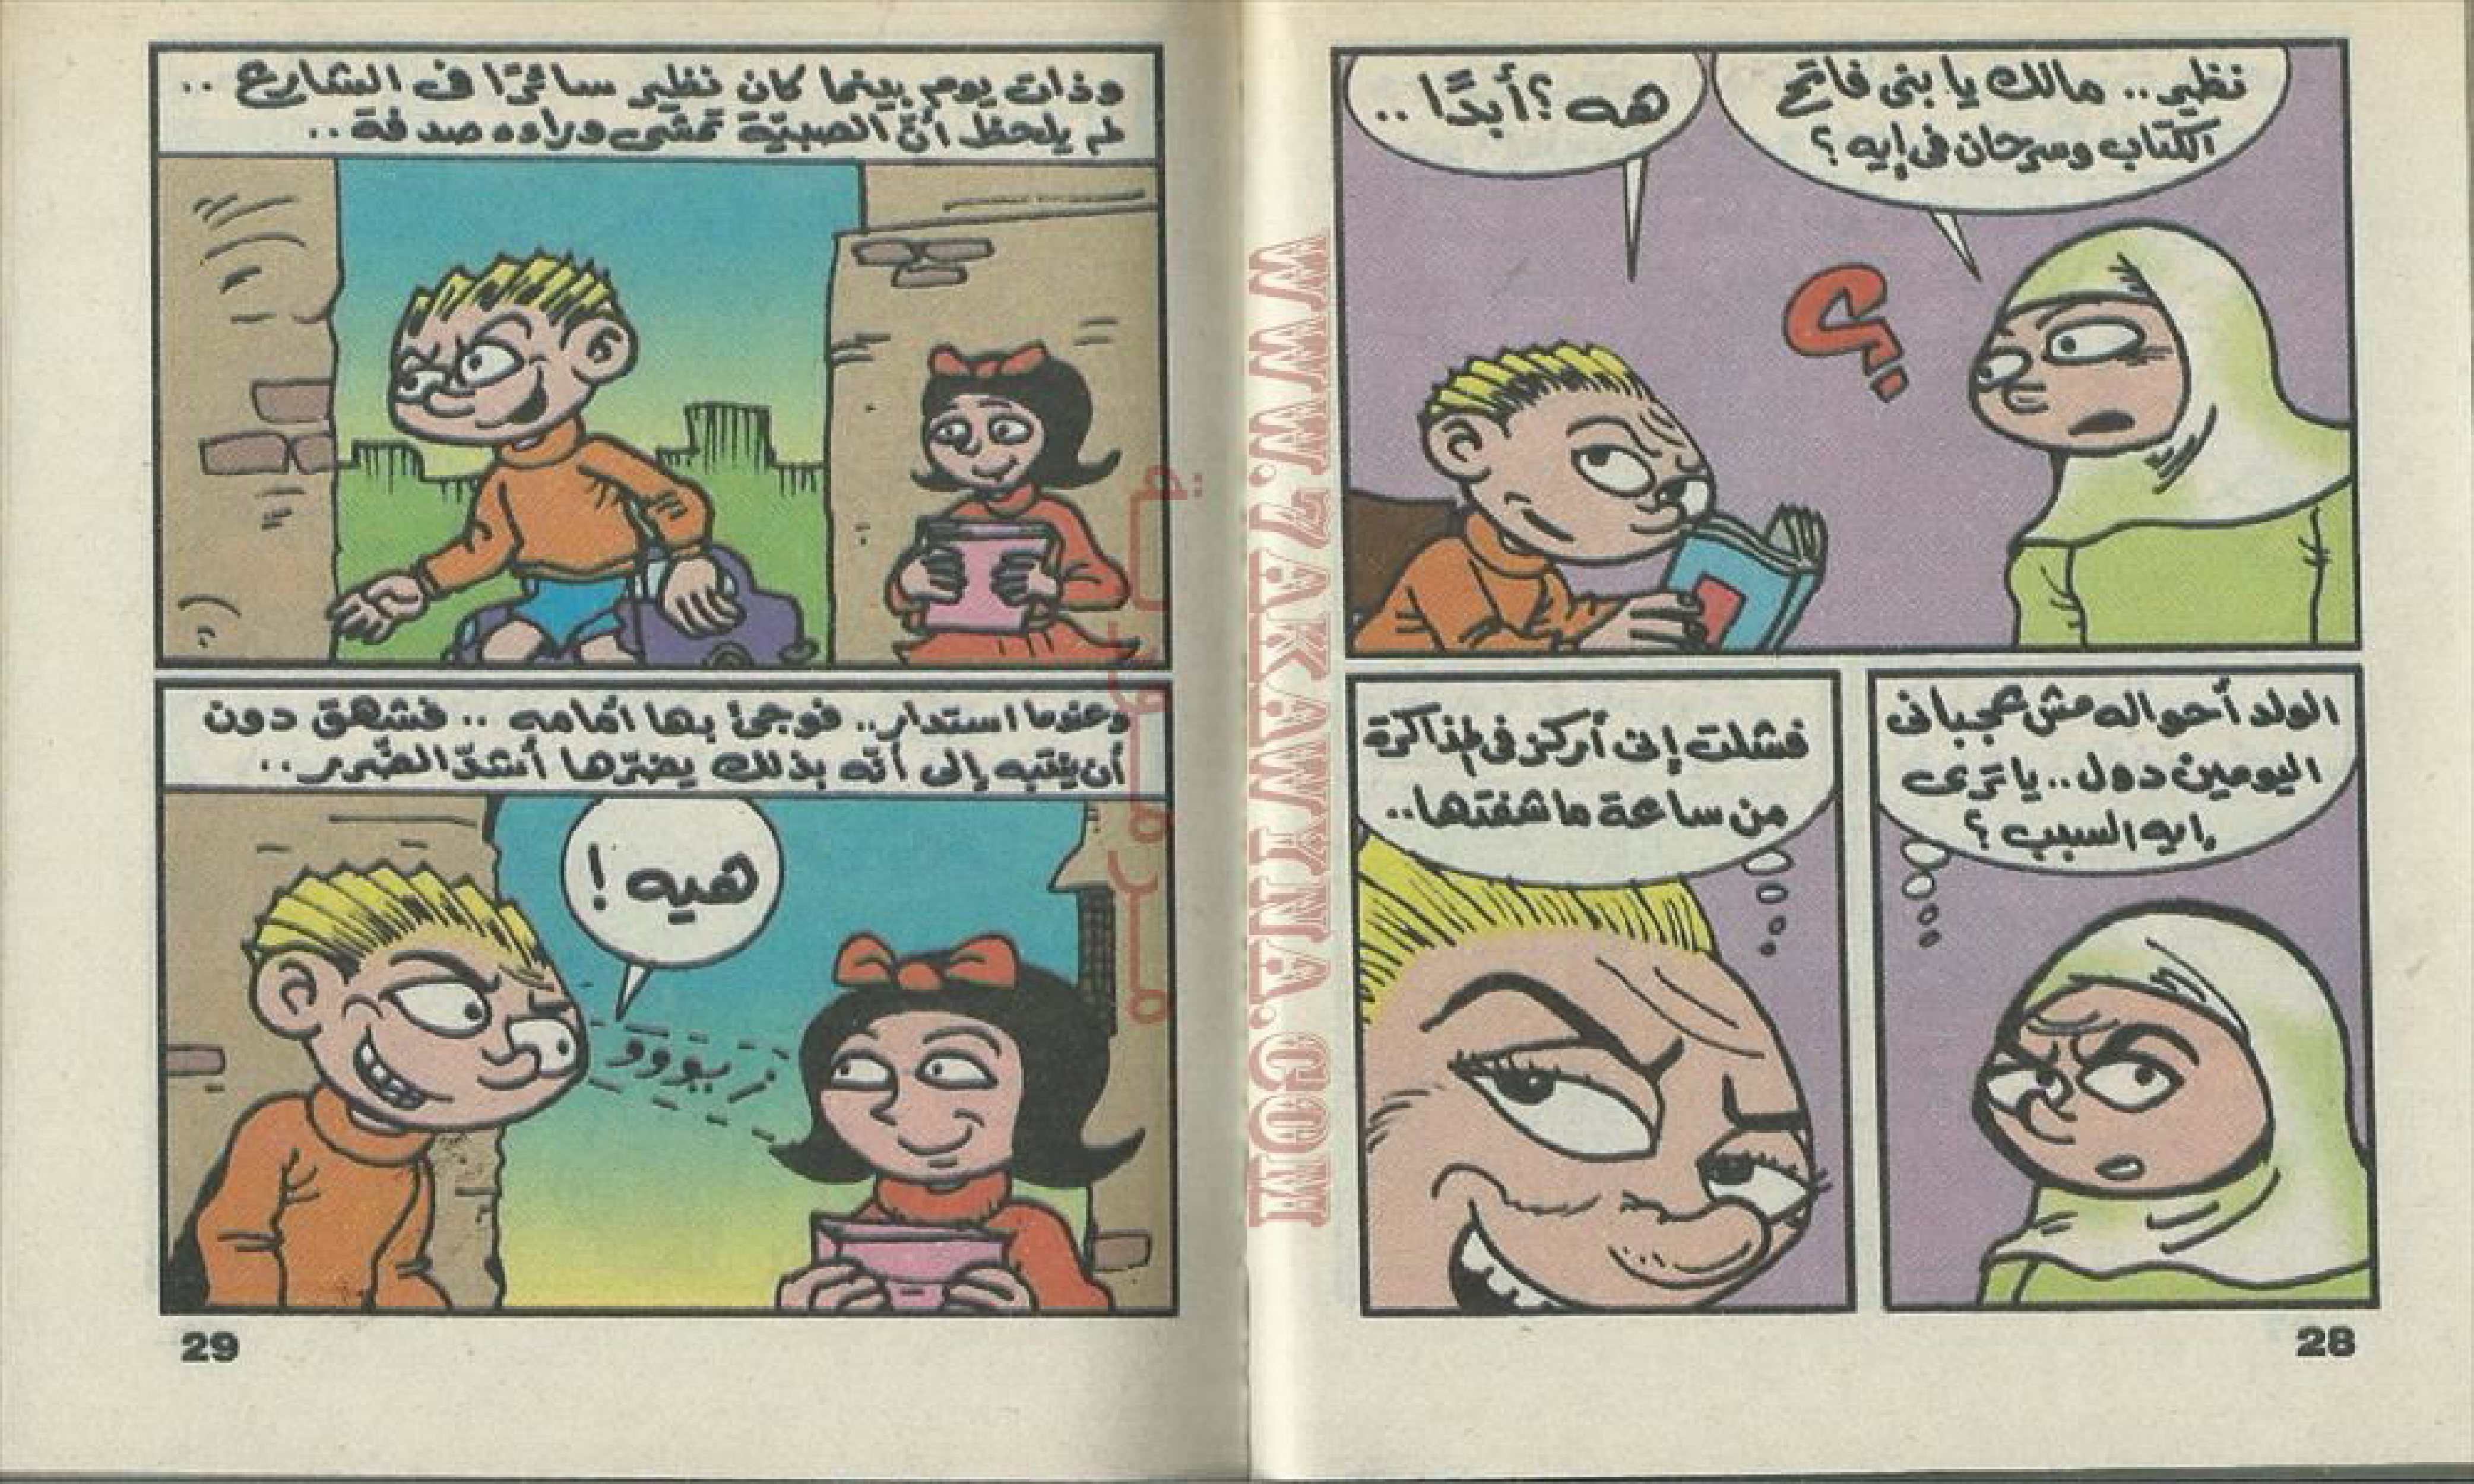 نظير.. مالك يا بنى فاتح
الكتاب وسرحان فى إيه؟
هه؟ أبدًا..
؟
الولد أحواله مش عجبانى
اليومين دول.. يا ترى
إيه السبب؟
فشلت إنى أركز فى المذاكرة
من ساعة ما شفتها..
28
وذات يوم بينما كان نظير سائرًا فى الشارع..
لم يلحظ أنّ الصبيّة تمشى وراءه صدفة..
وعندما استدار.. فوجئ بها أمامه.. فشهق دون
أن ينتبه إلى أنّه بذلك يضرّها أشدّ الضّرر..
هيه!
زيووو
29
WWW.ZAKAWYNA.COM